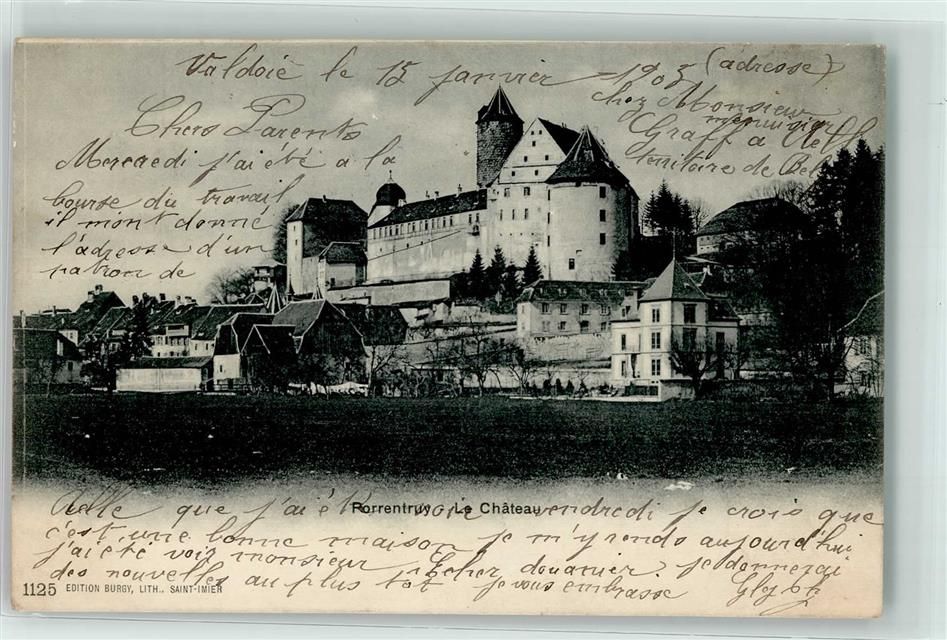 Valdoie le 15 janvier 1903 (adresse)
chez Monsieur
menuisier
Graff a Delle
territoire de Bel
Chers Parents
Mercredi j'ai été a la
bourse du travail
il m'ont donné
l'adresse d'un
patron de
Delle que j'ai été voir vendredi je crois que
c'est une bonne maison je m'y rends aujourd'hui
j'ai été voir monsieur douanier je donnerai
des nouvelles au plus tot je vous embrasse
Porrentruy Le Château
1125 EDITION BURGY, LITH., SAINT-IMIER